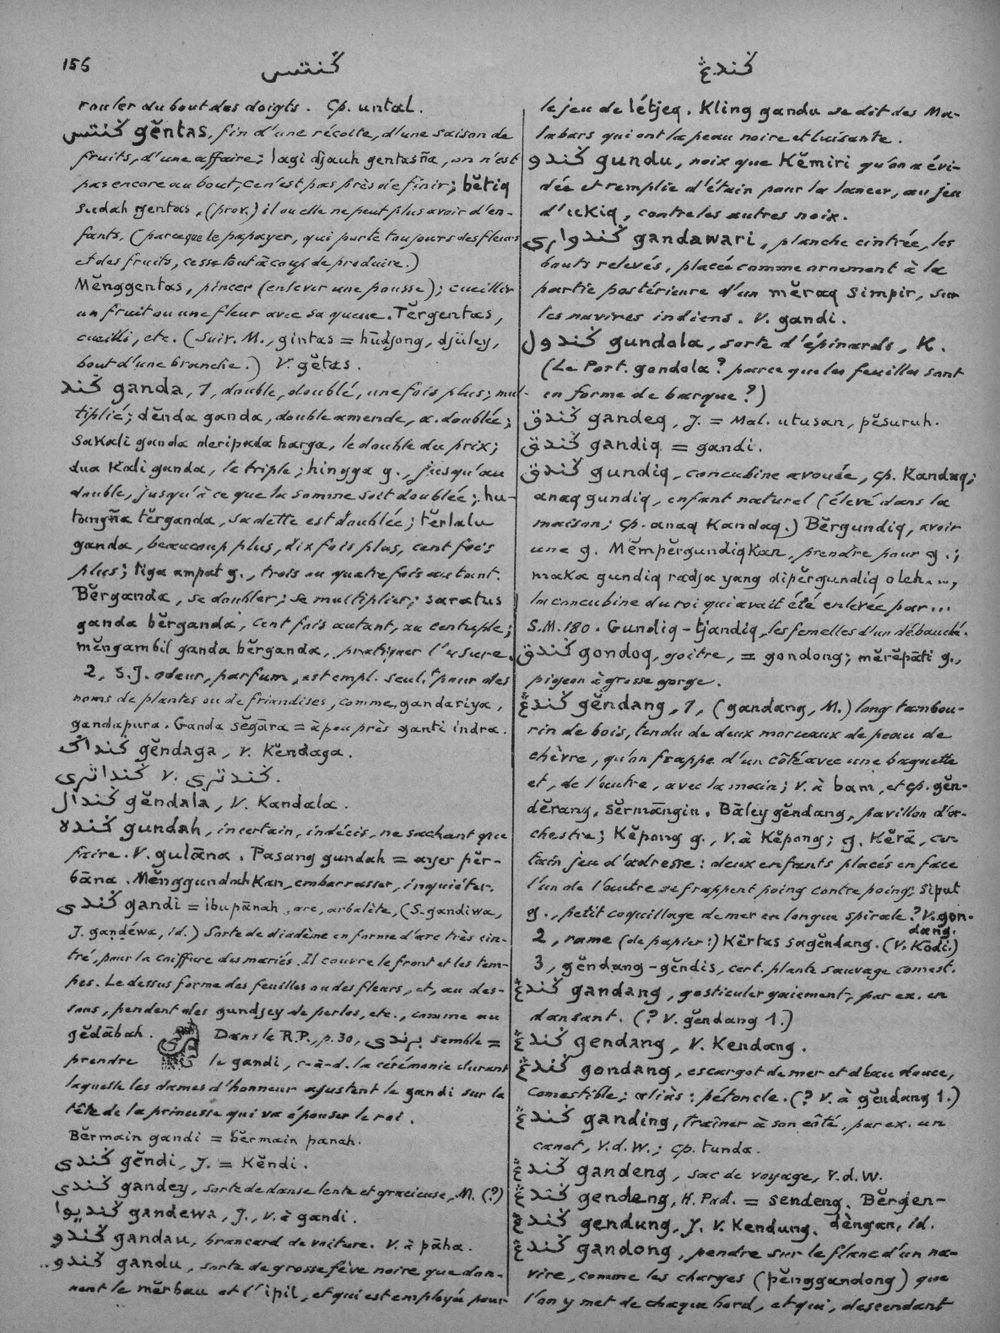 156
كنتس
كندڠ
rouler du bout des doigts. Cp. untal.
كنتس gĕntas, fin d'une récolte, d'une saison de
fruits, d'une affaire; lagi djauh gentasña, on n'est
pas encore au bout, ce n'est pas près de finir; bĕtiq
sudah gentas, (prov.) il ou elle ne peut plus avoir d'en-
fants. (parceque le papayer, qui porte toujours des fleurs
et des fruits, cesse tout à coup de produire.)
Mĕnggentas, pincer (enlever une pousse); cueillir
un fruit ou une fleur avec sa queue. Tĕrgentas,
cueilli, etc. (Suiv. M., gintas = hūdjong, djūley,
bout d'une branche.) V. gĕtas.
كند ganda, 1, double, doublé, une fois plus; mul-
tiplié; dĕnda ganda, double amende, a. doublée;
sakali ganda deripada harga, le double du prix;
dua kali ganda, le triple; hingga g., jusqu'au
double, jusqu'à ce que la somme soit doublée; hu-
tangña tĕrganda, sa dette est doublée; tĕrlalu
ganda, beaucoup plus, dix fois plus, cent fois
plus; tiga ampat g., trois ou quatre fois autant.
Bĕrganda, se doubler; se multiplier; saratus
ganda bĕrganda, cent fois autant, au centuple;
mĕngambil ganda bĕrganda, pratiquer l'usure.
2, S.J. odeur, parfum, est empl. seult pour des
noms de plantes ou de friandises, comme gandariya,
gandapura. Ganda sĕgāra = à peu près ganti indra.
كنداݢ gĕndaga, v. Kĕndaga.
كنداتري v. كندتري.
كندال gĕndala, V. Kandala.
كنده gundah, incertain, indécis, ne sachant que
faire. V. gulāna. Pasang gundah = ayer pĕr-
bāna. Mĕnggundahkan, embarrasser, inquiéter.
كندي gandi = ibupānah, arc, arbalète, (S. gandiwa,
J. gandéwa, id.) Sorte de diadème en forme d'arc très cin-
tré, pour la coiffure des mariés. Il couvre le front et les tem-
pes. Le dessus forme des feuilles ou des fleurs, et, au des-
sous, pendent des gundjey de perles, etc., comme au
gĕdābah. Dans le R.P., p. 30, برندي semble =
prendre le gandi, c-à-d. la cérémonie durant
laquelle les dames d'honneur ajustent le gandi sur la
tête de la princesse qui va épouser le roi.
Bĕrmain gandi = bĕrmain panah.
كندي gĕndi, J. = Kĕndi.
كندي gandey, sorte de danse lente et gracieuse, M. (?)
كنديوا gandewa, J., v. à gandi.
كندو gandau, brancard de voiture. V. à pāha.
كندو gandu, sorte de grosse fève noire que don-
nent le mĕrbau et l'ipil, et qui est employée pour
le jeu de létjeq. Kling gandu se dit des Ma-
labars qui ont la peau noire et luisante.
كندو gundu, noix que Kĕmiri qu'on a évi-
dée et remplie d'étain pour la lancer, au jeu
d'ukiq, contre les autres noix.
كندواري gandawari, planche cintrée, les
bouts relevés, placée comme ornement à la
partie postérieure d'un mĕraq simpir, sur
les navires indiens. V. gandi.
كندول gundala, sorte d'épinards, K.
(Le Port. gondola? parce que les feuilles sont
en forme de barque?)
كندق gandeq, J. = Mal. utusan, pĕsuruh.
كندق gandiq = gandi.
كندق gundiq, concubine avouée, cp. Kandaq;
anaq gundiq, enfant naturel (élevé dans la
maison; cp. anaq Kandaq.) Bĕrgundiq, avoir
une g. Mĕmpĕrgundiqkan, prendre pour g.;
maka gundiq radja yang dipĕrgundiq oleh...,
la concubine du roi qui avait été enlevée par...
S.M. 180. Gundiq-tjandiq, les femelles d'un débauché.
كندق gondoq, goître, = gondong; mĕrĕpāti g.,
pigeon à grosse gorge.
كندڠ gĕndang, 1, (gandang, M.) long tambou-
rin de bois, tendu de deux morceaux de peau de
chèvre, qu'on frappe d'un côté avec une baguette
et, de l'autre, avec la main; V. à bam, et cp. gĕn-
dĕrang, sĕrmāngin. Bāley gĕndang, pavillon d'or-
chestre; Kĕpong g., V. à Kĕpong; g. Kĕrā, cer-
tain jeu d'adresse: deux enfants placés en face
l'un de l'autre se frappent poing contre poing. Siput
g., petit coquillage de mer en longue spirale? V. gon-
dang.
2, rame (de papier:) Kĕrtas sagĕndang. (V. Kodi.)
3, gĕndang-gĕndis, cert. plante sauvage comest.
كندڠ gandang, gesticuler gaiement, par ex. en
dansant. (? V. gĕndang 1.)
كندڠ gendang, V. Kendang.
كندڠ gondang, escargot de mer et d'eau douce,
comestible; aliàs: pétoncle. (? V. à gĕndang 1.)
كندڠ ganding, traîner à son côté, par ex. un
canot, V.d.W.; cp. tunda.
كندڠ gandeng, sac de voyage, V.d.W.
كندڠ gendeng, H. Pad. = sendeng. Bĕrgen-
dèngan, id.
كندڠ gendung, J. V. Kendung.
كندڠ gandong, pendre sur le flanc d'un na-
vire, comme les charges (pĕnggandong) que
l'on y met de chaque bord, et qui, descendant